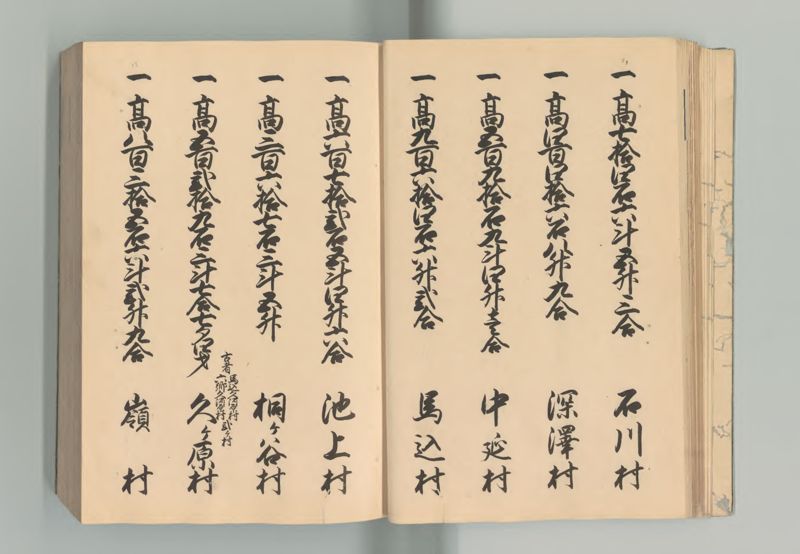 一 高七拾四石六斗五升三合 石川村
一 高四百四拾六石八升九合 深澤村
一 高五百九拾石九斗四升壱合 中延村
一 高九百六拾四石六升弐合 馬込村
一 高六百七拾弐石五斗四升六合 池上村
一 高三百六拾七石三斗五升 桐ヶ谷村
一 高五百弐拾九石三斗七合七勺四才 久ヶ原村
古者
馬込久河原村
六郷久河原村弐ヶ村
一 高八百三拾五石六斗弐升九合 嶺村